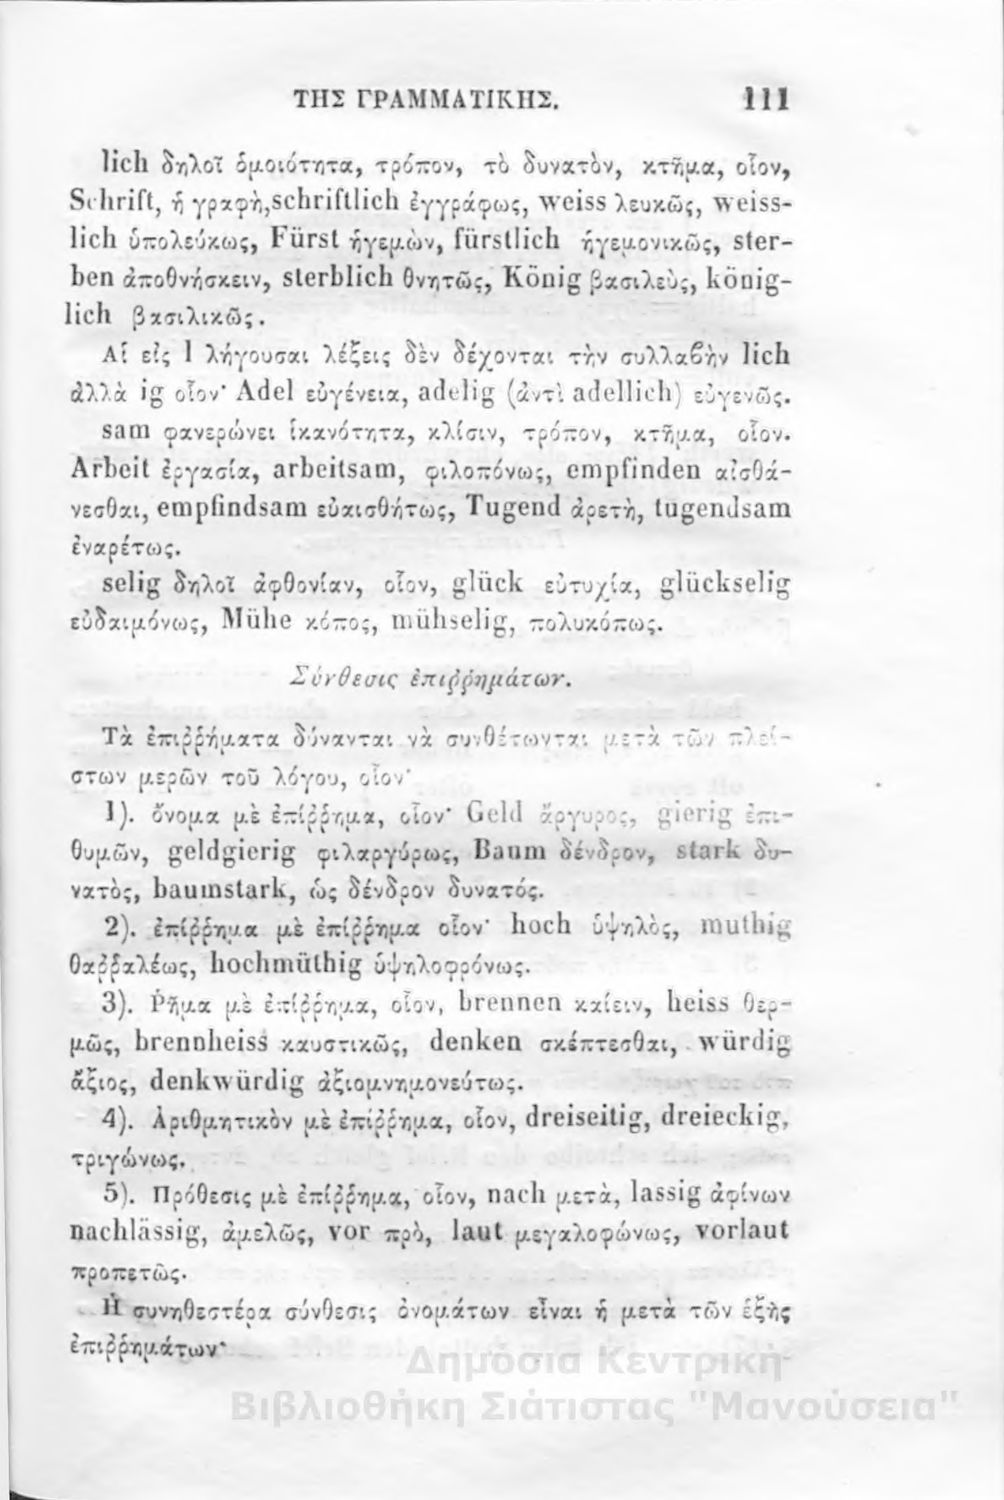 ΤΗΣ ΓΡΑΜΜΑΤΙΚΗΣ. 111
lich δηλοῖ ὁμοιότητα, τρόπον, τὸ δυνατὸν, κτῆμα, οἷον,
Schrift, ἡ γραφὴ,schriftlich ἐγγράφως, weiss λευκῶς, weiss-
lich ὑπολεύκως, Fürst ἡγεμὼν, fürstlich ἡγεμονικῶς, ster-
ben ἀποθνήσκειν, sterblich θνητῶς, König βασιλεὺς, könig-
lich βασιλικῶς.
Αἱ εἰς l λήγουσαι λέξεις δὲν δέχονται τὴν συλλαβὴν lich
ἀλλὰ ig οἷον· Adel εὐγένεια, adelig (ἀντὶ adellich) εὐγενῶς.
sam φανερώνει ἱκανότητα, κλίσιν, τρόπον, κτῆμα, οἷον.
Arbeit ἐργασία, arbeitsam, φιλοπόνως, empfinden αἰσθά-
νεσθαι, empfindsam εὐαισθήτως, Tugend ἀρετὴ, tugendsam
ἐναρέτως.
selig δηλοῖ ἀφθονίαν, οἷον, glück εὐτυχία, glückselig
εὐδαιμόνως, Mühe κόπος, mühselig, πολυκόπως.
Σύνθεσις ἐπιῤῥημάτων.
Τὰ ἐπιῤῥήματα δύνανται νὰ συνθέτωνται μετὰ τῶν πλεί-
στων μερῶν τοῦ λόγου, οἷον·
1). ὄνομα μὲ ἐπίῤῥημα, οἷον· Geld ἄργυρος, gierig ἐπι-
θυμῶν, geldgierig φιλαργύρως, Baum δένδρον, stark δυ-
νατὸς, baumstark, ὡς δένδρον δυνατός.
2). ἐπίῤῥημα μὲ ἐπίῤῥημα οἷον· hoch ὑψηλὸς, muthig
θαῤῥαλέως, hochmüthig ὑψηλοφρόνως.
3). Ῥῆμα μὲ ἐπίῤῥημα, οἷον, brennen καίειν, heiss θερ-
μῶς, brennheiss καυστικῶς, denken σκέπτεσθαι, würdig
ἄξιος, denkwürdig ἀξιομνημονεύτως.
4). Ἀριθμητικὸν μὲ ἐπίῤῥημα, οἷον, dreiseitig, dreieckig,
τριγώνως.
5). Πρόθεσις μὲ ἐπίῤῥημα, οἷον, nach μετὰ, lassig ἀφίνων
nachlässig, ἀμελῶς, vor πρὸ, laut μεγαλοφώνως, vorlaut
προπετῶς.
Ἡ συνηθεστέρα σύνθεσις ὀνομάτων εἶναι ἡ μετὰ τῶν ἑξῆς
ἐπιῤῥημάτων·
Δημόσια Κεντρική
Βιβλιοθήκη Σιάτιστας "Μανούσεια"